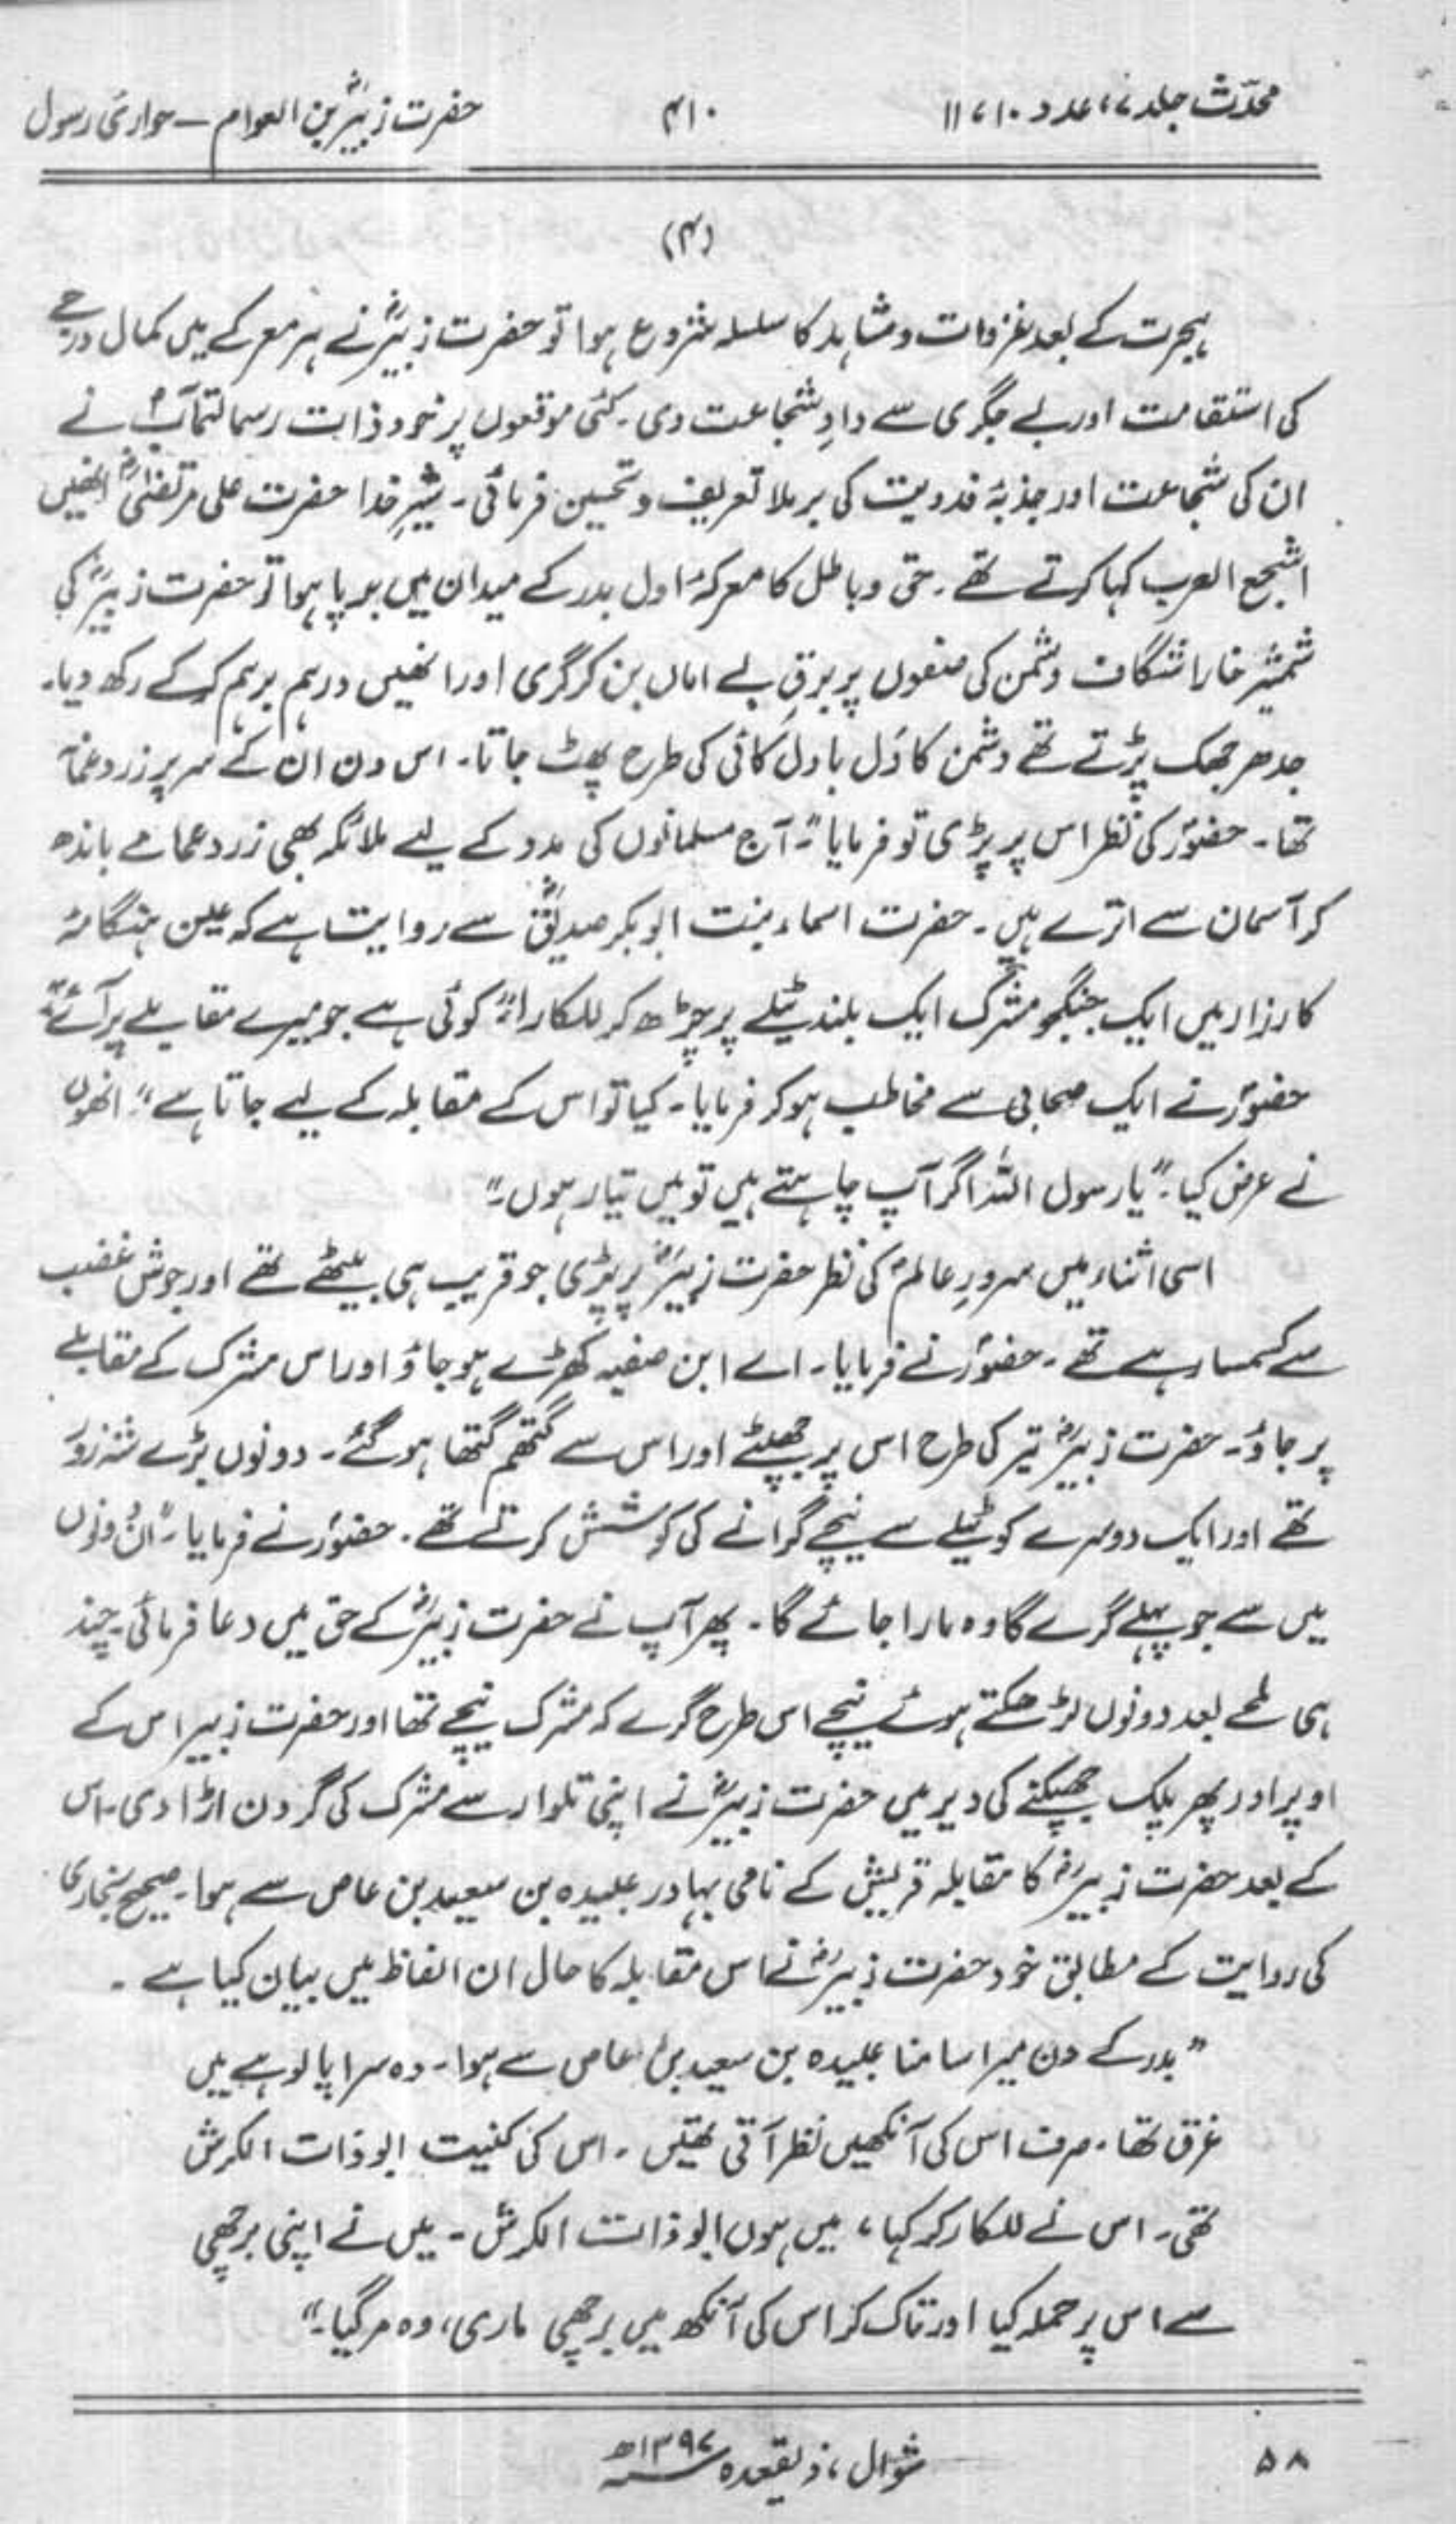 محدّث جلد ۷، عدد ۱۰، ۱۱
۴۱۰
حضرت زبیرؓ بن العوام – حواریٔ رسول
(۴)
ہجرت کے بعد غزوات و مشاہد کا سلسلہ شروع ہوا تو حضرت زبیرؓ نے ہر معرکے میں کمال درجے
کی استقامت اور بے جگری سے دادِ شجاعت دی۔ کئی موقعوں پر خود ذات رسالتمآبؐ نے
ان کی شجاعت اور جذبۂ فدویت کی برملا تعریف و تحسین فرمائی۔ شیرِ خدا حضرت علی مرتضیٰؓ انھیں
اشجع العرب کہا کرتے تھے۔ حق و باطل کا معرکۂ اول بدر کے میدان میں برپا ہوا تو حضرت زبیرؓ کی
شمشیرِ خارا شگاف دشمن کی صفوں پر برقِ بے اماں بن کر گری اور انھیں درہم برہم کر کے رکھ دیا۔
جدھر جھک پڑتے تھے دشمن کا دَل بادل کائی کی طرح پھٹ جاتا۔ اس دن ان کے سر پر زرد عمامہ
تھا۔ حضورؐ کی نظر اس پر پڑی تو فرمایا "آج مسلمانوں کی مدد کے لیے ملائکہ بھی زرد عمامے باندھ
کر آسمان سے اترے ہیں۔ حضرت اسماء بنت ابوبکر صدیقؓ سے روایت ہے کہ عین ہنگامۂ
کارزار میں ایک جنگجو مشرک ایک بلند ٹیلے پر چڑھ کر للکارا: "کوئی ہے جو میرے مقابلے پر آئے؟"
حضورؐ نے ایک صحابی سے مخاطب ہو کر فرمایا۔ کیا تو اس کے مقابلہ کے لیے جاتا ہے"۔ انھوں
نے عرض کیا۔ "یا رسول اللہ اگر آپ چاہتے ہیں تو میں تیار ہوں۔"
اسی اثناء میں سرورِ عالمؐ کی نظر حضرت زبیرؓ پر پڑی جو قریب ہی بیٹھے تھے اور جوش غضب
سے کسمسا رہے تھے۔ حضورؐ نے فرمایا۔ اے ابن صفیہ کھڑے ہو جاؤ اور اس مشرک کے مقابلے
پر جاؤ۔ حضرت زبیرؓ تیر کی طرح اس پر جھپٹے اور اس سے گتھم گتھا ہو گئے۔ دونوں بڑے شہ زور
تھے اور ایک دوسرے کو ٹیلے سے نیچے گرانے کی کوشش کرتے تھے۔ حضورؐ نے فرمایا۔ "ان دونوں
میں سے جو پہلے گرے گا وہ مارا جائے گا۔ پھر آپ نے حضرت زبیرؓ کے حق میں دعا فرمائی۔ چند
ہی لمحے بعد دونوں لڑھکتے ہوئے نیچے اس طرح گرے کہ مشرک نیچے تھا اور حضرت زبیر اس کے
اوپر اور پھر پلک جھپکنے کی دیر میں حضرت زبیرؓ نے اپنی تلوار سے مشرک کی گردن اڑا دی۔ اس
کے بعد حضرت زبیرؓ کا مقابلہ قریش کے نامی بہادر عبیدہ بن سعید بن عاص سے ہوا۔ صحیح بخاری
کی روایت کے مطابق خود حضرت زبیرؓ نے اس مقابلہ کا حال ان الفاظ میں بیان کیا ہے۔
"بدر کے دن میرا سامنا عبیدہ بن سعید بن عاص سے ہوا۔ وہ سراپا لوہے میں
غرق تھا۔ صرف اس کی آنکھیں نظر آتی تھیں۔ اس کی کنیت ابو ذات الکرش
تھی۔ اس نے للکار کر کہا، میں ہوں ابو ذات الکرش۔ میں نے اپنی برچھی
سے اس پر حملہ کیا اور تاک کر اس کی آنکھ میں برچھی ماری، وہ مر گیا۔"
۵۸
شوال، ذیقعدہ ۱۳۹۷ھ